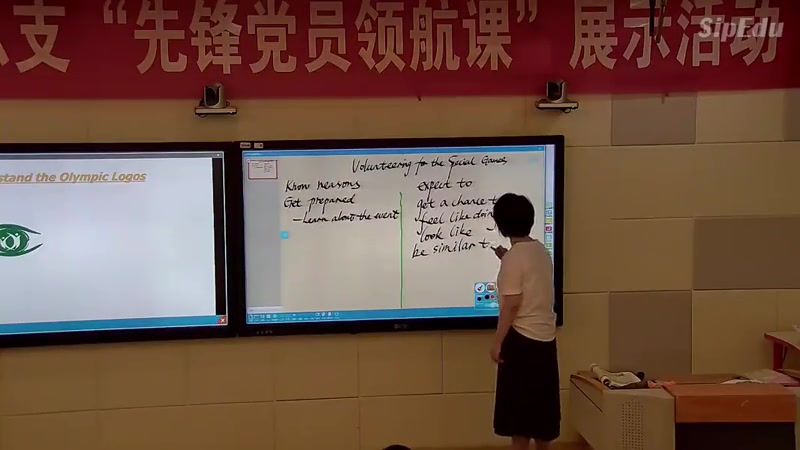 支“先锋党员领航课”展示活动
SipEdu
stand the Olympic Logos
Volunteering for the Special Games
Know reasons
Get prepared
—Learn about the event
expect to
get a chance t
feel like doin
look like
be similar t